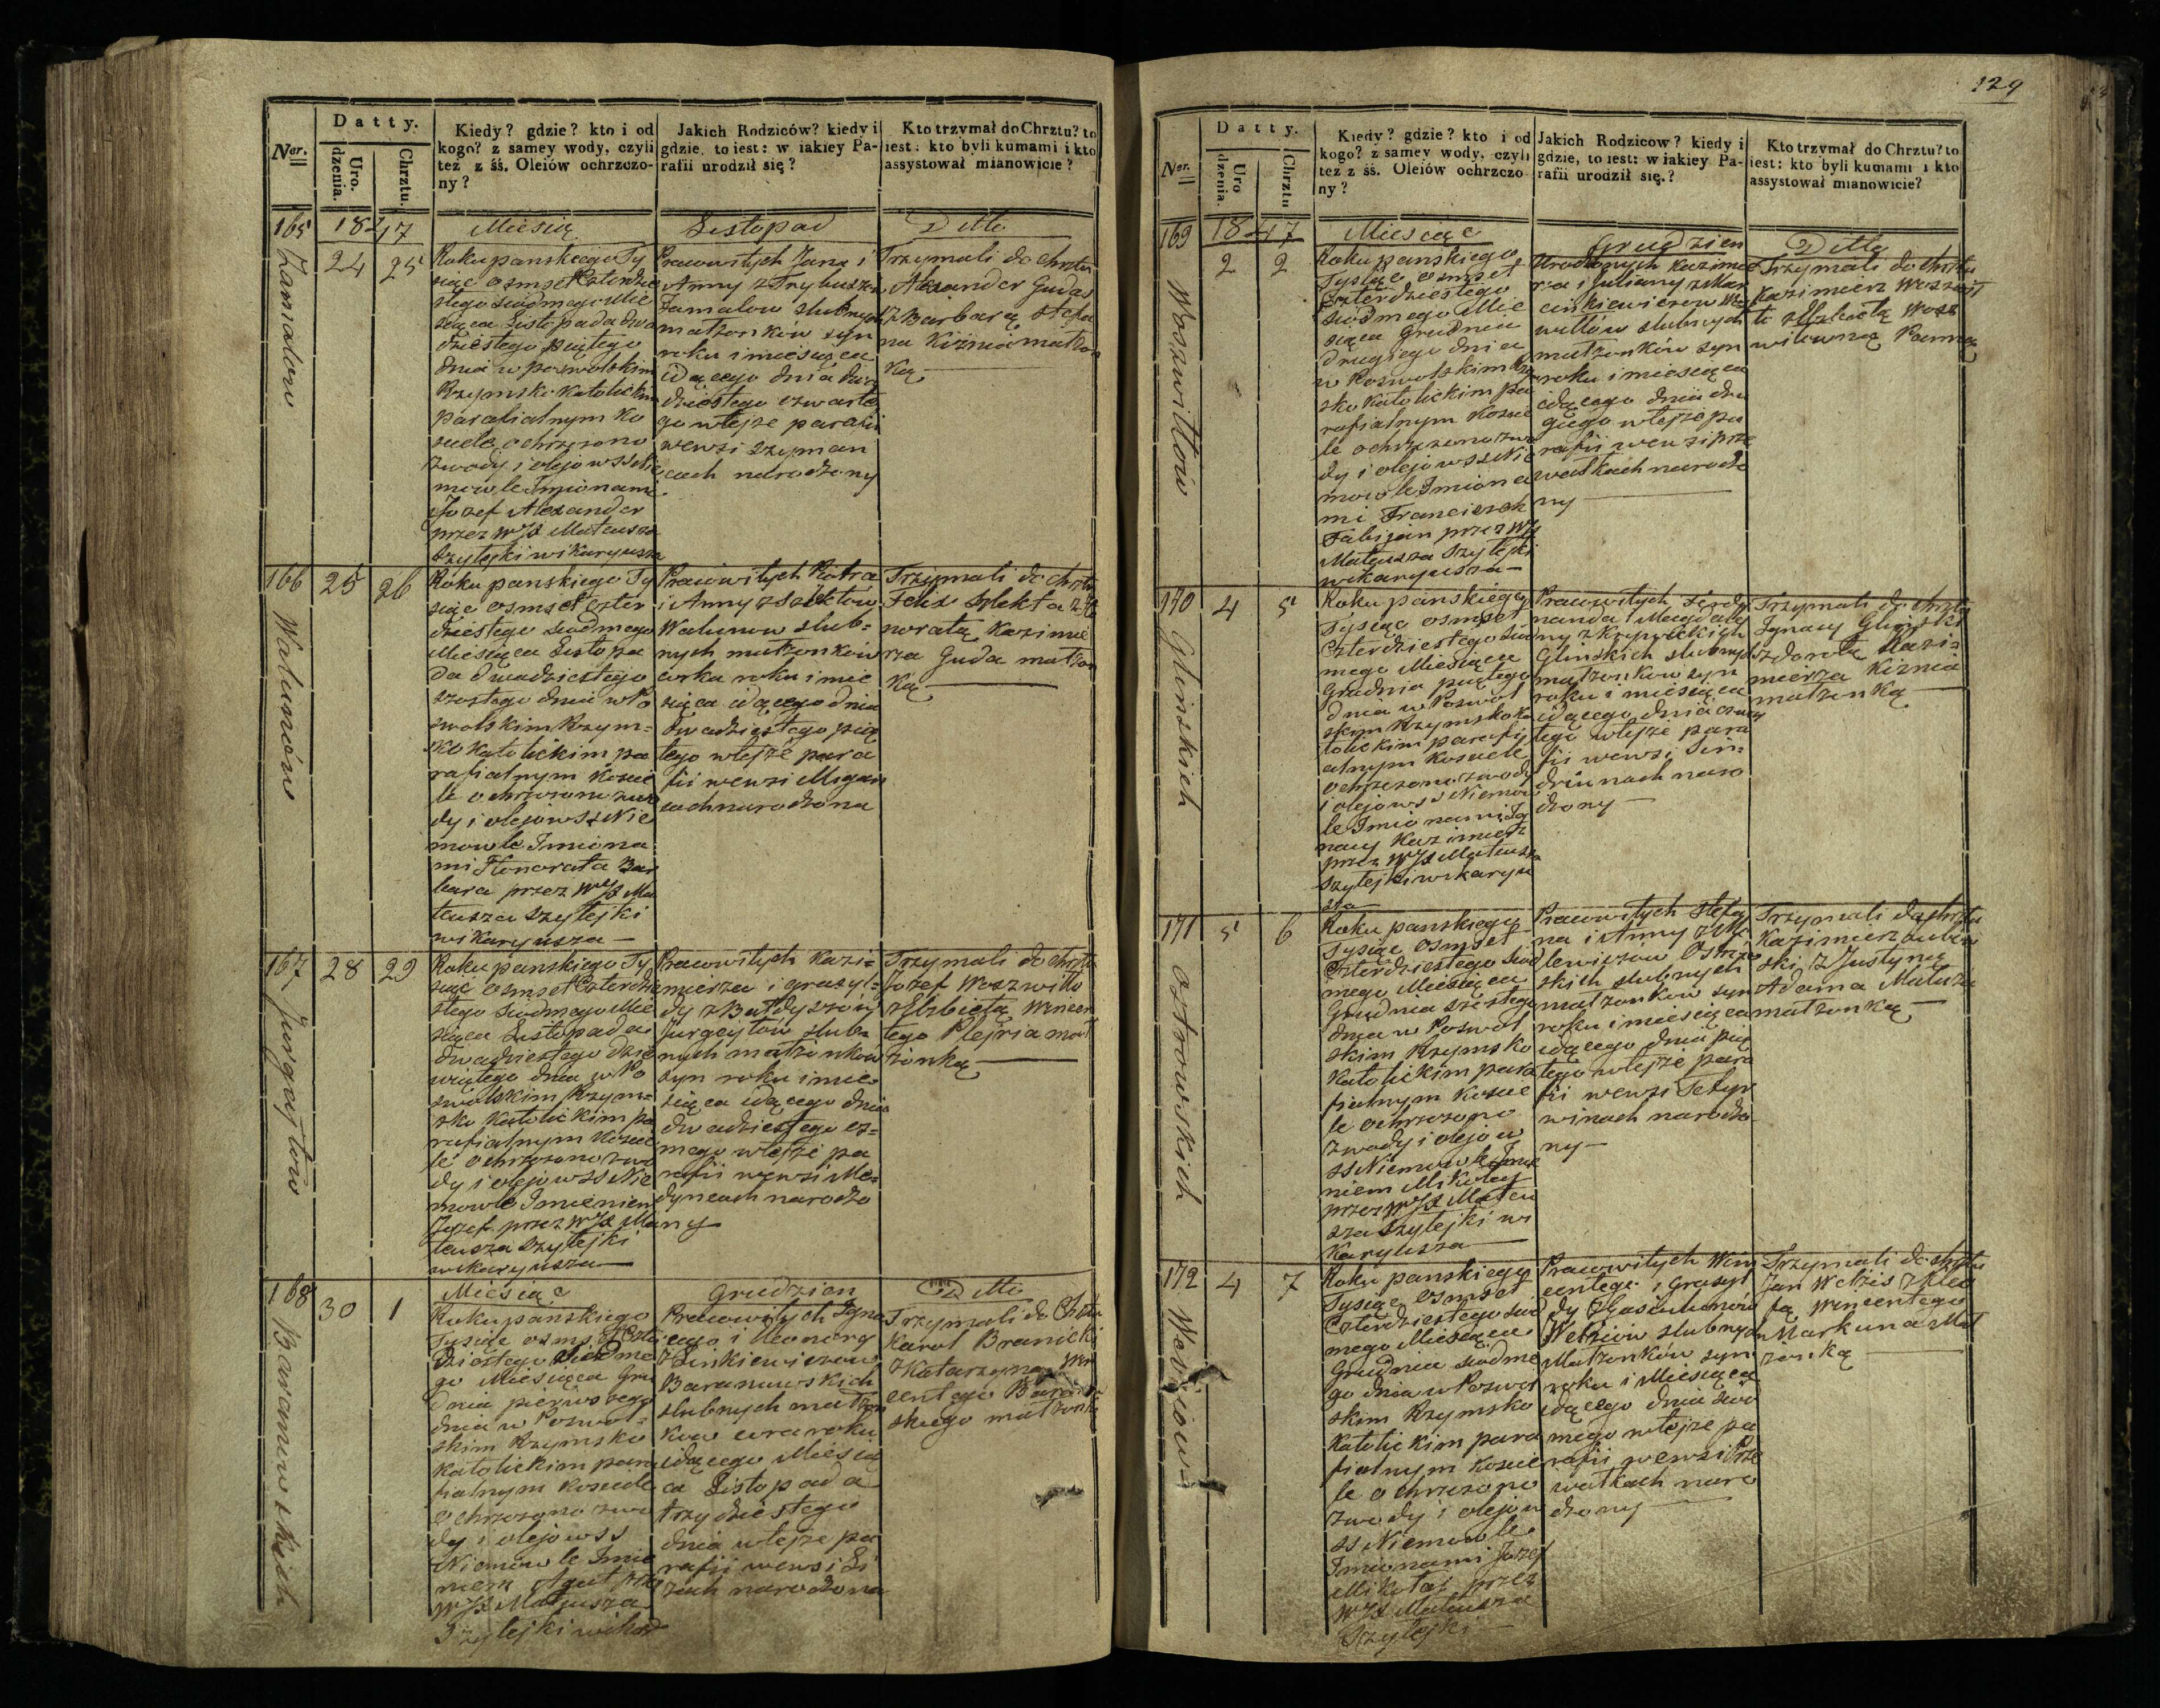 129
Ner.
Datty.
Uro.
dzenia.
Chrztu.
Kiedy? gdzie? kto i od
kogo? z samey wody, czyli
też z śś. Oleiów ochrzczo-
ny?
Jakich Rodziców? kiedy i
gdzie, to iest: w iakiey Pa-
rafii urodził się?
Kto trzymał do Chrztu? to
iest: kto byli kumami i kto
assystował mianowicie?
165
1847
Miesią
Listopad
Ditto
Zamatow
24
25
Roku panskiego Ty
siąc osmset Czterdzie
stego siodmego Mie
siąca Listopada dwa
dziestego piątego
dnia w poswolskim
Rzymsko Katolickim
parafialnym Ko
sciele ochrzczono
z wody i olejow ss Nie
mowle Imionami
Jozef Alexander
przez WJX Mateusza
Szylejki wikaryusza
Prawowitych Jana i
Anny z Trybuszow
Zamatow slubnych
małzonków syn
roku i miesiąca
idącego dnia dwa
dziestego czwarte
go w tejze parafii
wewsi Szyman
cach narodzony
Trzymali do chrztu
Alexander Gudas
z Barbarą Stefa
na Kiznia małzon
ką
166
Walunów
25
26
Roku panskiego Ty
siąc osmset czter
dziestego siodmego
Miesiąca Listopa
da dwadziestego
szostego dnia w Po
swolskim Rzym=
sko Katolickim pa
rafialnym Koscie
le ochrzczono z wo
dy i olejow ss Nie
mowle Imiona
mi Honorata Bar
bara przez WJX Ma
teusza Szylejki
wikaryusza
Prawowitych Piotra
i Anny z Szlektow
Walunow slub=
nych małzonkow
corka roku i mie
siąca idącego dnia
dwadziestego pią
tego w tejze para
fii wewsi Migan
cach narodzona
Trzymali do chrztu
Felix Szlekta z Ho
noratą Kazimie
rza Guda małzon
ką
167
Jurgajtow
28
29
Roku panskiego Ty
siąc osmset Czterdzie
stego siodmego Mie
siąca Listopada
dwadziestego dzie
wiątego dnia w Po
swolskim Rzym=
sko Katolickim pa
rafialnym Koscie
le ochrzczono z wo
dy i olejow ss Nie
mowle Imieniem
Jozef przez WJX Ma
teusza Szylejki
wikaryusza
Prawowitych Kazi=
mierza i Grasyl=
dy z Bałdyszów
Jurgajtów slub=
nych małzonków
syn roku i mie
siąca idącego dnia
dwadziestego os=
mego w tejze pa
rafii wewsi Me=
dyncach narodzo
ny
Trzymali do chrztu
Jozef Woszwiłło
z Elzbietą Wincen
tego Plejria mał
zonką
168
Baranowskich
30
1
Miesiąc
Grudzien
Ditto
Roku panskiego
Tysiąc osmset Czter
dziestego siodme
go Miesiąca Gru
dnia pierwszego
dnia w Poswol=
skim Rzymsko
Katolickim para
fialnym Kosciele
ochrzczono z wo
dy i olejow ss
Niemowle Imie
niem Agata przez
WJX Mateusza
Szylejki wikar
Prawowitych Igna
cego i Eleonory
z Linkiewiczow
Baranowskich
slubnych małzon
kow corka roku
idącego Miesią
ca Listopada
trzydziestego
dnia w tejze pa
rafii wewsi Li
ziach narodzona
Trzymali do Chrztu
Karol Branicki
z Katarzyną Win
centego Baranow
skiego małzonką
Ner.
Datty.
Uro
dzenia.
Chrztu
Kiedy? gdzie? kto i od
kogo? z samey wody, czyli
też z śś. Oleiów ochrzczo
ny?
Jakich Rodziców? kiedy i
gdzie, to iest: w iakiey Pa-
rafii urodził się.?
Kto trzymał do Chrztu? to
iest: kto byli kumami i kto
assystował mianowicie?
169
1847
Miesiąc
Grudzien
Ditto
Woszwiłłow
2
2
Roku panskiego
Tysiąc osmset
Czterdziestego
siodmego Mie
siąca Grudnia
drugiego dnia
w Poswolskim Rzym
sko Katolickim pa
rafialnym Koscie
le ochrzczono z wo
dy i olejow ss Nie
mowle Imiona
mi Franciszek
Fabijan przez WJX
Mateusza Szylejki
wikaryusza
Urodzonych Kazimie
rza i Julianny z Mar
cinkiewiczow Wosz
wiłłów slubnych
małzonków syn
roku i miesiąca
idącego dnia dru
giego w tejze pa
rafii wewsi Prze
wałkach narodzo
ny
Trzymali do chrztu
Kazimierz Woszwił
ło z Elzbietą Wosz
wiłowną Panną
170
Glinskich
4
5
Roku panskiego
Tysiąc osmset
Czterdziestego siod
mego Miesiąca
Grudnia piątego
dnia w Poswol
skim Rzymsko Ka
tolickim parafij
alnym Kosciele
ochrzczono z wody
i olejow ss Niemow
le Imionami Ig
nacy Kazimierz
przez WJX Mateusza
Szylejki wikaryu
sza
Prawowitych Ferdy
nanda i Magdale
ny z Krupickich
Glinskich slubnych
małzonkow syn
roku i miesiąca
idącego dnia czwar
tego w tejze para
fii wewsi Gin=
dziunach naro
dzony
Trzymali do chrztu
Ignacy Glinski
z Dorotą Kazi=
mierza Kiznia
małzonką
171
Ostrowskich
5
6
Roku panskiego
Tysiąc osmset
Czterdziestego siod
mego Miesiąca
Grudnia szostego
dnia w Poswol
skim Rzymsko
Katolickim para
fialnym Koscie
le ochrzczono
z wody i olejow
ss Niemowle Imie
niem Mikołaj
przez WJX Mateu
sza Szylejki wi
karyusza
Prawowitych Stefa
na i Anny z
lewiczow Ostrow
skich slubnych
małzonkow syn
roku i miesiąca
idącego dnia pią
tego w tejze para
fii wewsi Tetyr
winach narodzo
ny
Trzymali do chrztu
Kazimierz Lubin
ski z Justyną
Adama Matuza
małzonką
172
Welziow
4
7
Roku panskiego
Tysiąc osmset
Czterdziestego siod
mego Miesiąca
Grudnia siodme
go dnia w Poswol
skim Rzymsko
Katolickim para
fialnym Koscie
le ochrzczono
z wody i olejow
ss Niemowle
Imionami Jozef
Mikołaj przez
WJX Mateusza
Szylejki
Prawowitych Win
centego i Grasyl
dy z Łasciunow
Welziow slubnych
Małzonkow syn
roku i Miesiąca
idącego dnia siod
mego w tejze pa
rafii wewsi Prze
wałkach naro
dzony
Trzymali do chrztu
Jan Welzis z Kleo
fą Wincentego
Markuna Mał
zonką